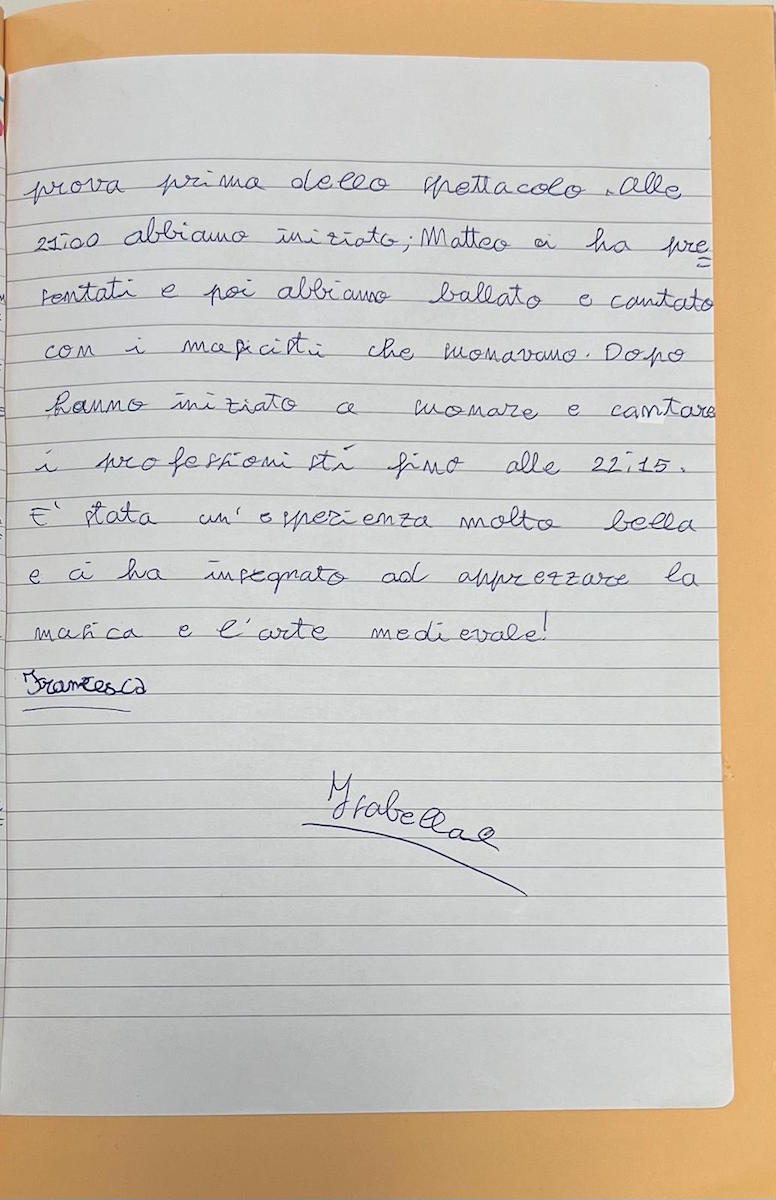 prova prima dello spettacolo. Alle
21:00 abbiamo iniziato; Matteo ci ha pre=
sentati e poi abbiamo ballato e cantato
con i musicisti che suonavano. Dopo
hanno iniziato a suonare e cantare
i professionisti fino alle 22:15.
E' stata un'esperienza molto bella
e ci ha insegnato ad apprezzare la
musica e l'arte medievale!
Francesca
Isabella